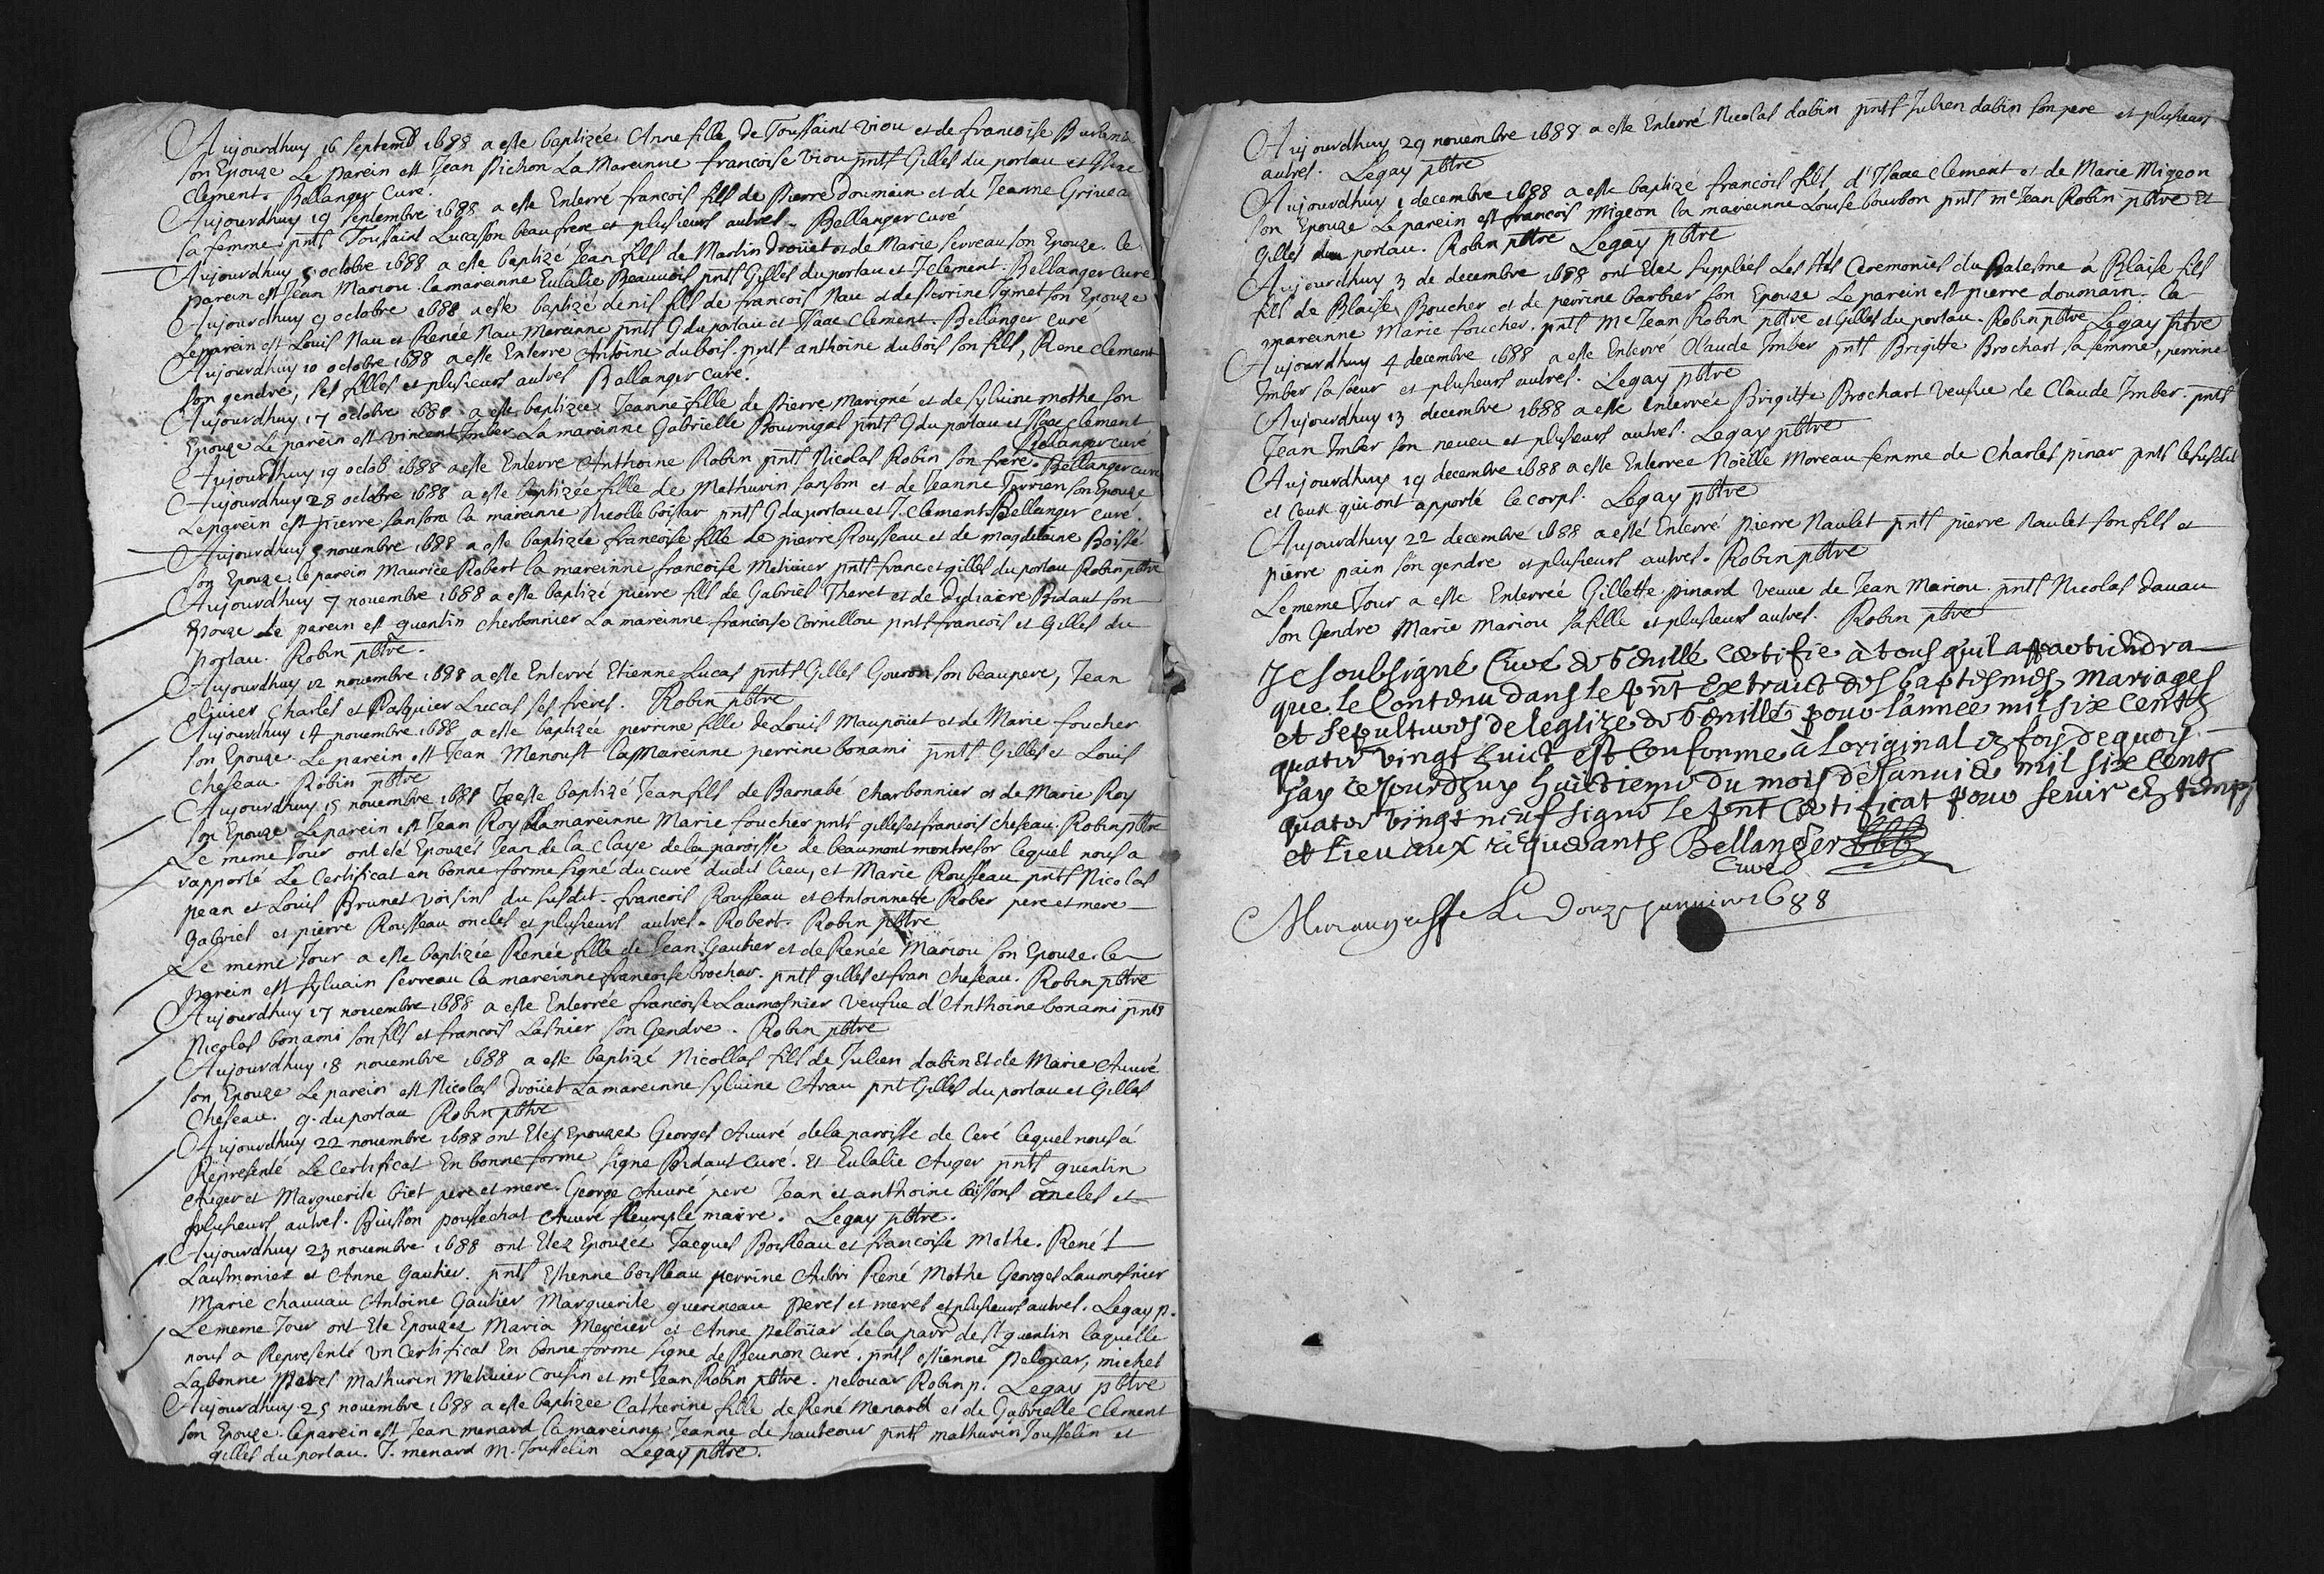 Aujourdhuy 16 septemb 1688 a este baptizée Anne fille de Toussaint Viou et de francoise
son Epouze Le parein est Jean Pichon La Mareinne francoise Viou pnts Gilles du portau et Isaac
Clement. Bellanger Curé.
Aujourdhuy 19 septembre 1688 a este Enterré francois fils de Pierre Doumain et de Jeanne
sa femme pnts Toussaint Lucasson beau frere et plusieurs autres. Bellanger curé
Aujourdhuy 5 octobre 1688 a este baptizé Jean fils de Martin Droüet et de Marie Serreau son Epouze. le
parein est Jean Mariou. la mareinne Eulalie Beauvois pnts Gilles du portau et J clement. Bellanger Curé
Aujourdhuy 9 octobre 1688 a este baptizé denis fils de francois Nau et de perrine son Epouze
Le parein est Louis Nau et Renée Nau Mareinne pnts G du portau et Isaac Clement. Bellanger curé
Aujourdhuy 10 octobre 1688 a este Enterré Antoine dubois. pnts anthoine dubois son fils, Rene clement
son gendre, ses filles et plusieurs autres Bellanger curé.
Aujourdhuy 17 octobre 1688 a este baptizée Jeanne fille de Pierre Marigné et de Sylvine mothe son
Epouze Le parein est vincent Imber La mareinne Gabrielle Bournigal pnts G du portau et Isaac clement
Bellanger curé
Aujourdhuy 19 octob 1688 a este Enterré Anthoine Robin pnts Nicolas Robin son frere. Bellanger curé
Aujourdhuy 28 octobre 1688 a este baptizée fille de Mathurin Sansom et de Jeanne Terrien son Epouze
Le parein est pierre Sansom la mareinne Nicolle boistar pnts G du portau et J. Clement Bellanger curé.
Aujourdhuy novembre 1688 a este baptizée francoise fille de pierre Rousseau et de magdelaine Boissé
son Epouze. le parein Maurice Robert la mareinne francoise Metivier pnts franc et gilles du portau Robin pbtre
Aujourdhuy 7 novembre 1688 a este baptizé pierre fils de Gabriel Theret et de Bidaut son
Epouze Le parein est quentin cherbonnier La mareinne francoise Cornillou pnts francois et Gilles du
portau. Robin pbtre.
Aujourdhuy 12 novembre 1688 a este Enterré Etienne Lucas pnts Gilles Gouron son beaupere, Jean
Charles et Pasquier Lucas ses freres. Robin pbtre
Aujourdhuy 14 novembre 1688 a este baptizée perrine fille de Louis Maupoüet et de Marie foucher
son Epouze. Le parein est Jean Menoust la Mareinne perrine bonami pnts Gilles et Louis
Cheseau. Robin pbtre
Aujourdhuy 15 novembre 1688 a este baptizé Jean fils de Barnabé charbonnier et de Marie Roy
son Epouze Le parein est Jean Roy la mareinne Marie foucher pnts gilles et francois cheseau. Robin pbtre
Le meme Jour ont eté Epouzés Jean de la Claye de la paroisse de beaumont montresor lequel nous a
rapporté Le Certificat en bonne forme signé du curé dudit lieu, et Marie Rousseau pnts Nicolas
pean et Louis Brunet voisins du susdit. francois Rousseau et Antoinnette Rober pere et mere
Gabriel et pierre Rousseau oncles et plusieurs autres. Robert. Robin pbtre
Le meme Jour a este baptizée Renée fille de Jean Gautier et de Renée Mariou son Epouze. le
parein est Sylvain Serreau la mareinne francoise brochar. pnts gilles et fran cheseau. Robin pbtre
Aujourdhuy 17 novembre 1688 a este Enterrée francoise Laumosnier Veufue d'Anthoine bonami pnts
Nicolas bonami son fils et francois Lasnier son Gendre. Robin pbtre
Aujourdhuy 18 novembre 1688 a este baptizé Nicollas fils de Julien dabin Et de Marie Auvré
son Epouze Le parein est Nicolas Droüet La mareinne sylvine Arau pnt Gilles du portau et Gilles
Cheseau. g. du portau Robin pbtre
Aujourdhuy 22 novembre 1688 ont Etez Epouzez Georges Auvré de la paroisse de Ceré lequel nous a
Representé Le Certificat En bonne forme signe Bidaut Curé. Et Eulalie Auger pnts quentin
Auger et Marguerite biet pere et mere. George Auvré pere Jean et anthoine buissons oncles et
plusieurs autres. Buisson poussechat Auvré fleury le maire. Legay pbtre.
Aujourdhuy 23 novembre 1688 ont Etez Epouzez Jacques Boisleau et francoise Mothe. René
Lausmonier et Anne Gautier. pnts Etienne boisleau perrine Aubri René Mothe Georges Laumosnier
Marie chauvau Antoine Gautier Marguerite guerineau peres et meres et plusieurs autres. Legay p.
Le meme Jour ont Ete Epouzez Maria Mercier et Anne pelouar de la parr de St quentin laquelle
nous a Representé un Certificat En bonne forme signe de Beunon curé. pnts estienne Pelouar, michel
Labonne peres Mathurin Metivier Cousin et me Jean Robin pbtre. pelouar Robin p. Legay pbtre
Aujourdhuy 25 novembre 1688 a este baptizée Catherine fille de René Menard et de Gabrielle Clement
son Epouze. le parein est Jean menard la mareinne Jeanne de hautcour pnts mathurin Jousselin et
gilles du portau. J. menard M. Jousselin Legay pbtre.
Aujourdhuy 29 novembre 1688 a este Enterré Nicolas dabin pnts Julien dabin son pere et plusieurs
autres. Legay pbtre
Aujourdhuy 1 decembre 1688 a este baptizé francois fils d'Isaac Clement et de Marie Migeon
son Epouze Le parein est francois Migeon la mareinne Louise bourbon pnts me Jean Robin pbtre Et
Gilles du portau. Robin pbtre Legay pbtre
Aujourdhuy 3 de decembre 1688 ont Etez suppleés Les Ceremonies du Batesme à Blaise fils
fils de Blaise Boucher et de perrine barbier son Epouze Le parein est pierre doumain. la
mareinne Marie foucher. pnts Me Jean Robin pbtre et Gilles du portau. Robin pbtre Legay pbtre
Aujourdhuy 4 decembre 1688 a este Enterré Claude Imber pnts Brigitte Brochart sa femme, perrine
Imber sa soeur et plusieurs autres. Legay pbtre
Aujourdhuy 13 decembre 1688 a este Enterrée Brigitte Brochart Veufue de Claude Imber. pnts
Jean Imber son neveu et plusieurs autres. Legay pbtre
Aujourdhuy 19 decembre 1688 a este Enterrée Noëlle Moreau femme de Charles pinar pnts lesusdit
et Ceux qui ont apporté le corps. Legay pbtre
Aujourdhuy 22 decembre 1688 a esté Enterré Pierre Naulet pnts pierre Naulet son fils et
pierre pain son gendre et plusieurs autres. Robin pbtre
Le meme Jour a este Enterreé Gillette pinard veuve de Jean Mariou pnts Nicolas davau
son Gendre Marie Mariou sa fille et plusieurs autres. Robin pbtre
Je soubsigné Curé de certifie à tous qu'il appartiendra
que le Contenu dans le pnt Extraict des baptesmes, mariages
et sepultures de leglize de pour l'annee mil six Cents
quatre vingt huict est conforme à l'original en foy de quoy
Jay ce Jourdhuy huictieme du mois de Januier mil six cents
quatre vingt neuf signé le pnt certificat pour seruir en temps
et lieu aux requerants Bellanger
Curé
Le Douze 1688